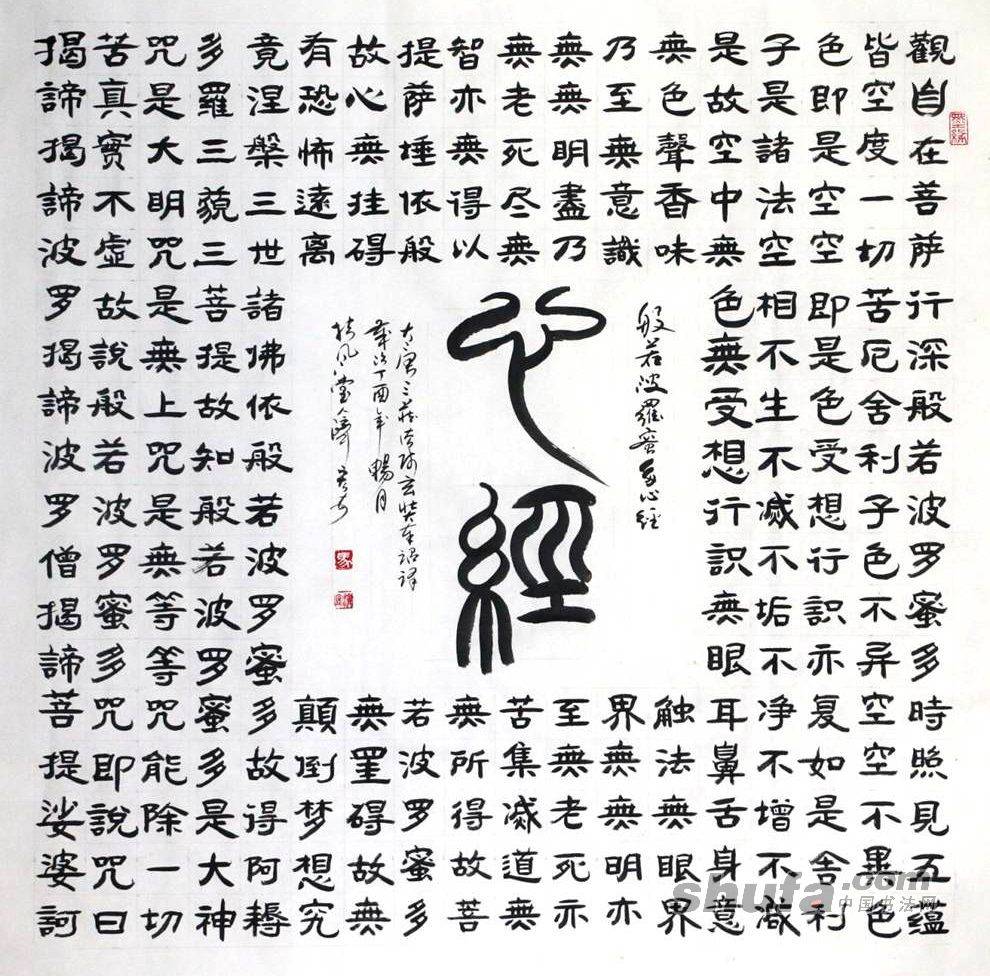 觀自在菩萨行深般若波罗蜜多時照見五蕴
皆空度一切苦厄舍利子色不异空空不異色
色即是空空即是色受想行識亦复如是舍利
子是諸法空相不生不滅不垢不净不增不减
是故空中無色無受想行識無眼耳鼻舌身意
無色聲香味触法無眼界
乃至無意識界無無明亦
無無明盡乃至無老死亦
無老死尽無苦集滅道無
智亦無得以無所得故菩
提萨埵依般若波罗蜜多
故心無挂碍無罣碍故無
有恐怖遠离顛倒梦想究
竟涅槃三世諸佛依般若波罗蜜多故得阿耨
多羅三藐三菩提故知般若波罗蜜多是大神
咒是大明咒是無上咒是無等等咒能除一切
苦真實不虛故說般若波罗蜜多咒即說咒曰
揭諦揭諦波罗揭諦波罗僧揭諦菩提娑婆訶
般若波羅蜜多心經
心經
大唐三藏法師玄奘奉詔譯
歲次丁酉年暢月
扶风堂
shufa.com
中国书法网